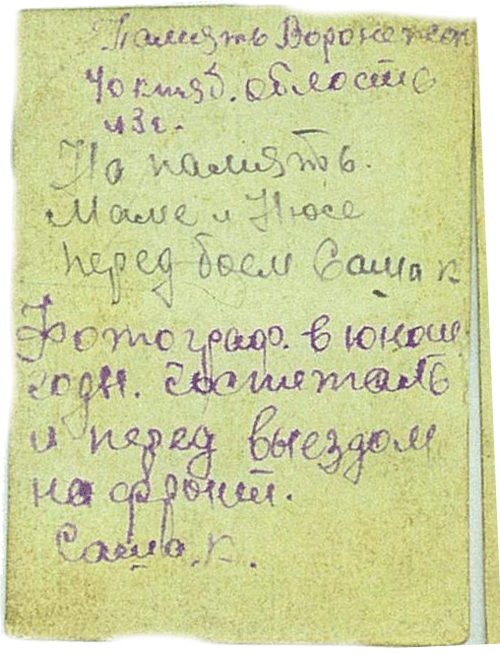 Память Воронежск
4 октяб. области
43 г.
На память.
Маме и Нюсе
перед боем Саша к
Фотограф. в юнош
годы. госпиталь
и перед выездом
на фронт.
Саша. к.